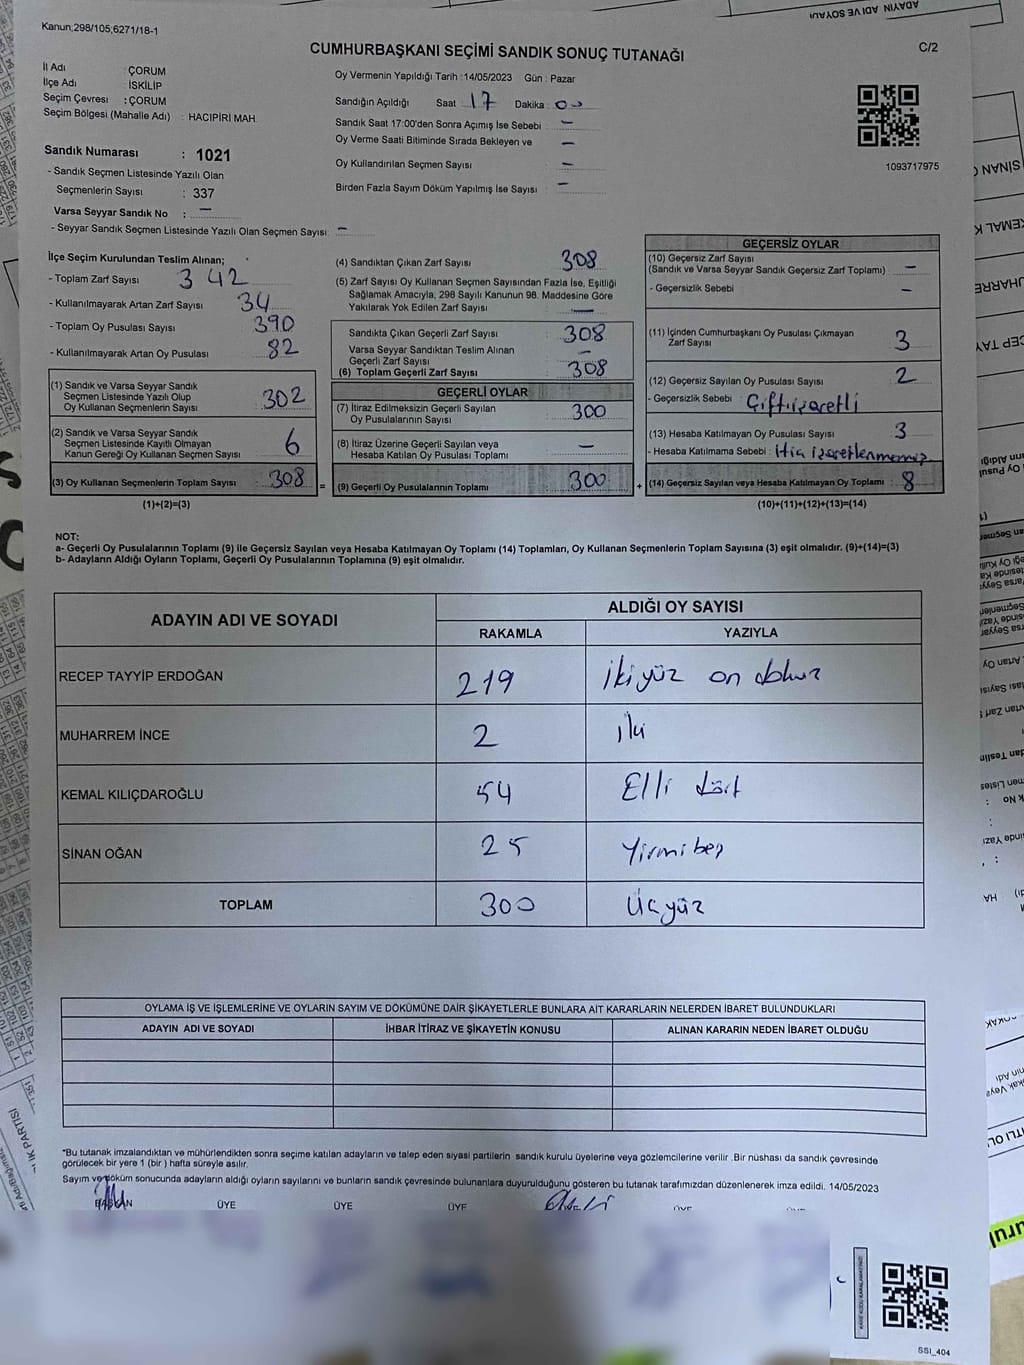 Kanun;298/105;6271/18-1
C/2
CUMHURBAŞKANI SEÇİMİ SANDIK SONUÇ TUTANAĞI
İl Adı : ÇORUM
İlçe Adı : İSKİLİP
Seçim Çevresi : ÇORUM
Seçim Bölgesi (Mahalle Adı) : HACIPİRİ MAH.
Sandık Numarası : 1021
- Sandık Seçmen Listesinde Yazılı Olan
Seçmenlerin Sayısı : 337
Varsa Seyyar Sandık No : —
- Seyyar Sandık Seçmen Listesinde Yazılı Olan Seçmen Sayısı: —
Oy Vermenin Yapıldığı Tarih :14/05/2023 Gün : Pazar
Sandığın Açıldığı Saat 17 Dakika : 00
Sandık Saat 17:00'den Sonra Açımış İse Sebebi : —
Oy Verme Saati Bitiminde Sırada Bekleyen ve —
Oy Kullandırılan Seçmen Sayısı : —
Birden Fazla Sayım Döküm Yapılmış İse Sayısı : —
1093717975
İlçe Seçim Kurulundan Teslim Alınan;
- Toplam Zarf Sayısı : 342
- Kullanılmayarak Artan Zarf Sayısı : 34
- Toplam Oy Pusulası Sayısı : 390
- Kullanılmayarak Artan Oy Pusulası : 82
(1) Sandık ve Varsa Seyyar Sandık
Seçmen Listesinde Yazılı Olup
Oy Kullanan Seçmenlerin Sayısı : 302
(2) Sandık ve Varsa Seyyar Sandık
Seçmen Listesinde Kayıtlı Olmayan
Kanun Gereği Oy Kullanan Seçmen Sayısı : 6
(3) Oy Kullanan Seçmenlerin Toplam Sayısı : 308
(1)+(2)=(3)
(4) Sandıktan Çıkan Zarf Sayısı : 308
(5) Zarf Sayısı Oy Kullanan Seçmen Sayısından Fazla İse, Eşitliği
Sağlamak Amacıyla, 298 Sayılı Kanunun 98. Maddesine Göre
Yakılarak Yok Edilen Zarf Sayısı : —
Sandıkta Çıkan Geçerli Zarf Sayısı : 308
Varsa Seyyar Sandıktan Teslim Alınan
Geçerli Zarf Sayısı : —
(6) Toplam Geçerli Zarf Sayısı : 308
GEÇERLİ OYLAR
(7) İtiraz Edilmeksizin Geçerli Sayılan
Oy Pusulalarının Sayısı : 300
(8) İtiraz Üzerine Geçerli Sayılan veya
Hesaba Katılan Oy Pusulası Toplamı : —
= (9) Geçerli Oy Pusulalarının Toplamı : 300 +
GEÇERSİZ OYLAR
(10) Geçersiz Zarf Sayısı
(Sandık ve Varsa Seyyar Sandık Geçersiz Zarf Toplamı) : —
- Geçersizlik Sebebi : —
(11) İçinden Cumhurbaşkanı Oy Pusulası Çıkmayan
Zarf Sayısı : 3
(12) Geçersiz Sayılan Oy Pusulası Sayısı : 2
- Geçersizlik Sebebi : Çift işaretli
(13) Hesaba Katılmayan Oy Pusulası Sayısı : 3
- Hesaba Katılmama Sebebi : Hiç işaretlenmemiş.
(14) Geçersiz Sayılan veya Hesaba Katılmayan Oy Toplamı : 8
(10)+(11)+(12)+(13)=(14)
NOT:
a- Geçerli Oy Pusulalarının Toplamı (9) ile Geçersiz Sayılan veya Hesaba Katılmayan Oy Toplamı (14) Toplamları, Oy Kullanan Seçmenlerin Toplam Sayısına (3) eşit olmalıdır. (9)+(14)=(3)
b- Adayların Aldığı Oyların Toplamı, Geçerli Oy Pusulalarının Toplamına (9) eşit olmalıdır.
ADAYIN ADI VE SOYADI
ALDIĞI OY SAYISI
RAKAMLA YAZIYLA
RECEP TAYYİP ERDOĞAN 219 İkiyüz on dokuz
MUHARREM İNCE 2 iki
KEMAL KILIÇDAROĞLU 54 Elli dört
SİNAN OĞAN 25 Yirmibeş
TOPLAM 300 Üçyüz
OYLAMA İŞ VE İŞLEMLERİNE VE OYLARIN SAYIM VE DÖKÜMÜNE DAİR ŞİKAYETLERLE BUNLARA AİT KARARLARIN NELERDEN İBARET BULUNDUKLARI
ADAYIN ADI VE SOYADI İHBAR İTİRAZ VE ŞİKAYETİN KONUSU ALINAN KARARIN NEDEN İBARET OLDUĞU
*Bu tutanak imzalandıktan ve mühürlendikten sonra seçime katılan adayların ve talep eden siyasi partilerin sandık kurulu üyelerine veya gözlemcilerine verilir .Bir nüshası da sandık çevresinde
görülecek bir yere 1 (bir ) hafta süreyle asılır.
Sayım ve döküm sonucunda adayların aldığı oyların sayılarını ve bunların sandık çevresinde bulunanlara duyurulduğunu gösteren bu tutanak tarafımızdan düzenlenerek imza edildi. 14/05/2023
BAŞKAN ÜYE ÜYE ÜYE
SSI_404